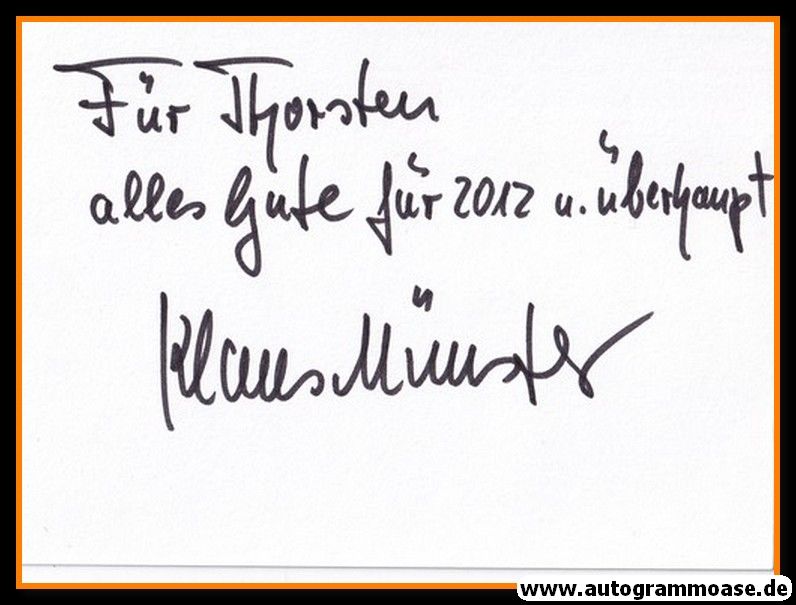 Für Thorsten
alles Gute für 2012 u. überhaupt
Klaus Münster
www.autogrammoase.de